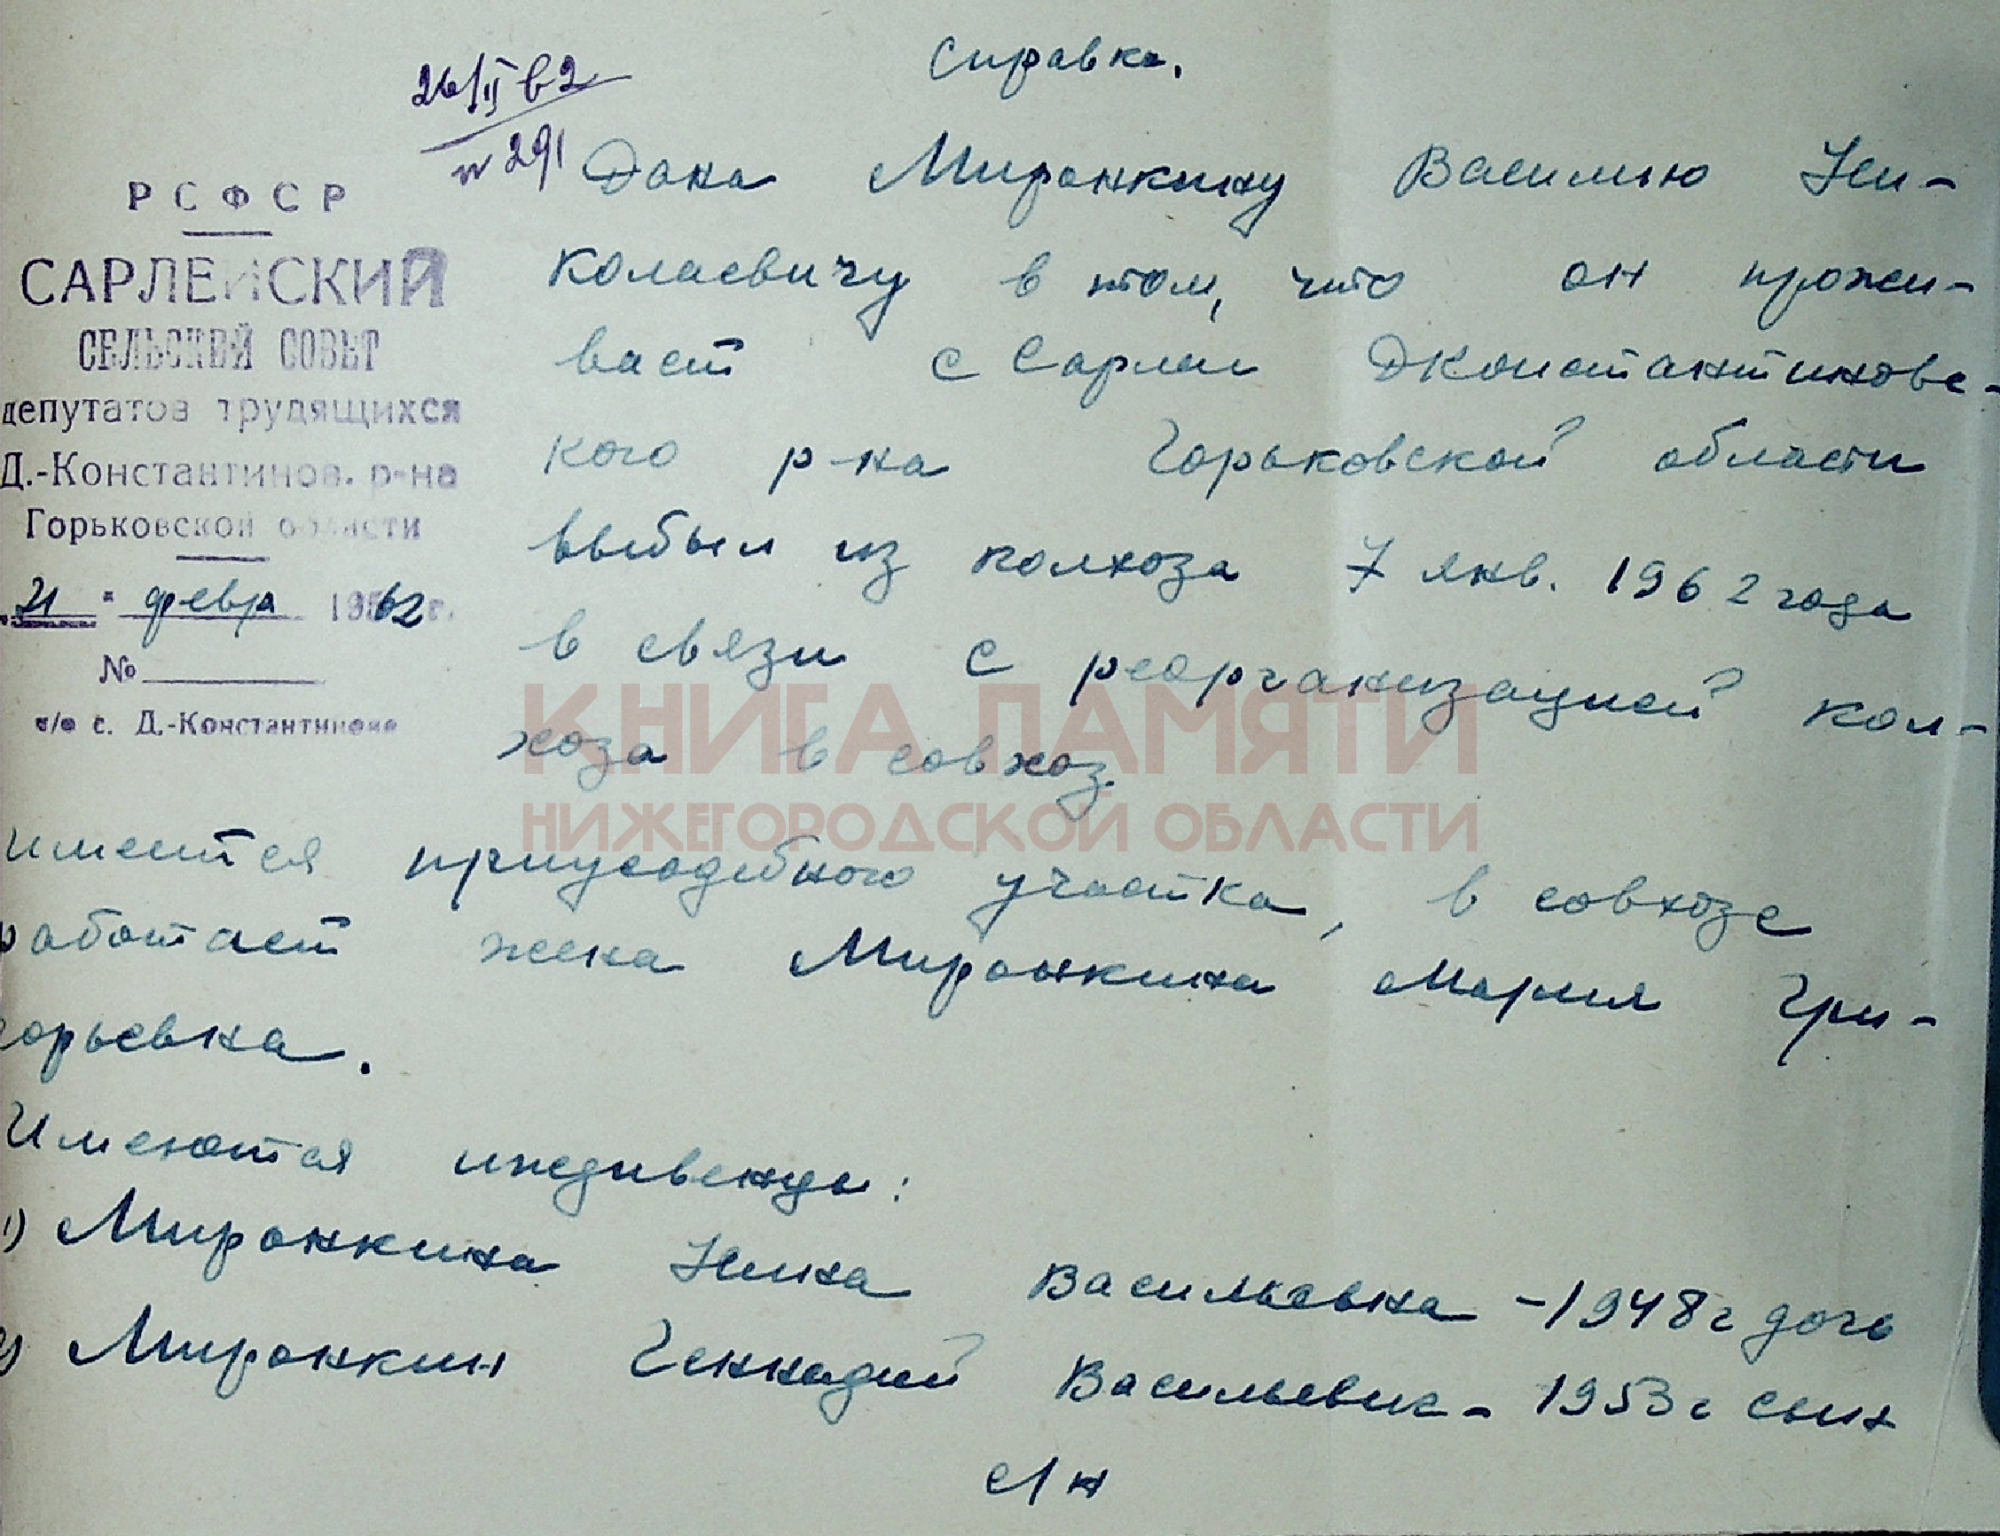 Справка.
26/II 62
№ 291
РСФСР
САРЛЕЙСКИЙ
СЕЛЬСКИЙ СОВЕТ
депутатов трудящихся
Д.-Константинов. р-на
Горьковской области
„21" февра 1962 г.
№
п/о с. Д.-Константиново
Дана Миронкину Василию Ни-
колаевичу в том, что он прожи-
вает с Сарлеи ДКонстантиновс-
кого р-на Горьковской области
выбыл из колхоза 7 янв. 1962 года
в связи с реорганизацией кол-
хоза в совхоз.
имеится приусадебного участка, в совхозе
работает жена Миронкина Мария Гри-
горьевна.
Имеются иждивенцы:
1) Миронкина Нина Васильевна - 1948 г дочь
2) Миронкин Геннадий Васильевич - 1953 г сын
КНИГА ПАМЯТИ
НИЖЕГОРОДСКОЙ ОБЛАСТИ